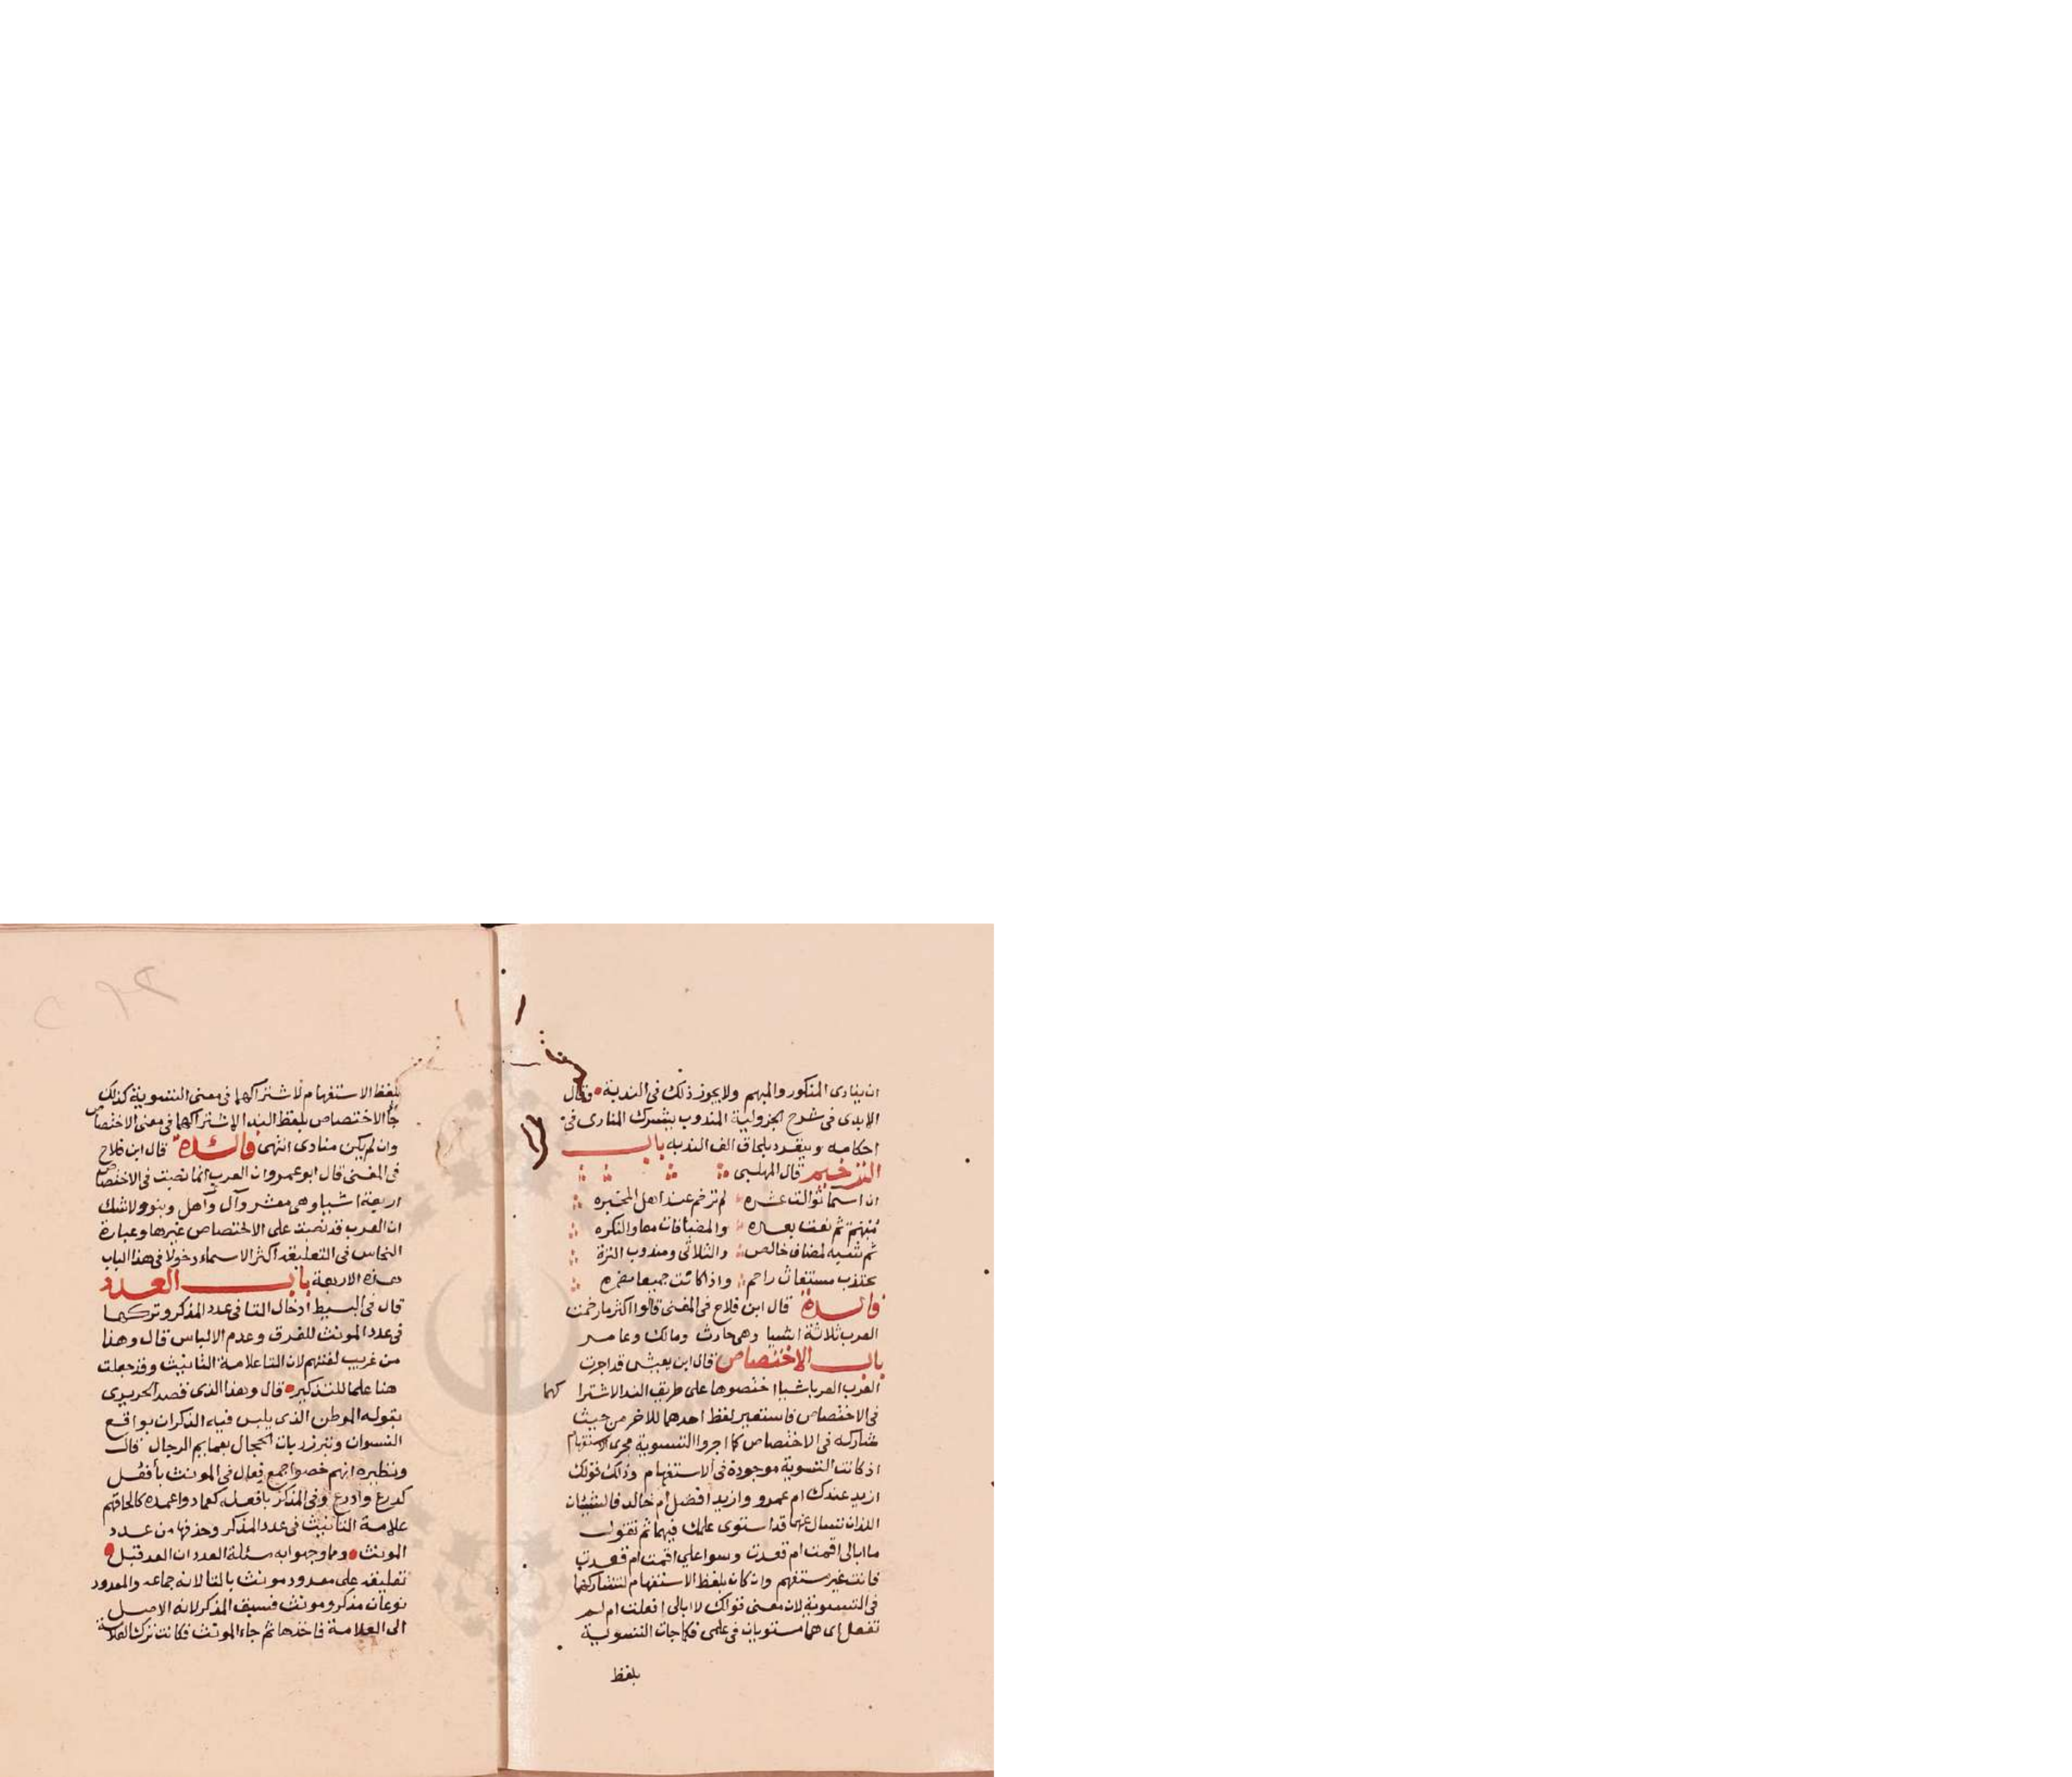 ان ينادى المنكور والمبهم ولا يجوز ذلك فى الندبة وقال
الابدى فى شرح الجزولية المندوب يشرك المنادى فى
احكامه وينفرد بلحاق الف الندبه باب
الترخيم قال المهلبى
ان اسما توالت عشره لم ترخم عند اهل المخبره
مبهم ثم نعت بعده والمضافات معا والنكره
ثم شبيه لمضاف خالص والثلاثى ومندوب التره
يجتذب مستغاث راحم واذا كانت جميعا مضره
فائدة قال ابن فلاح فى المغنى قالوا اكثر ما رخمت
العرب ثلاثة اشيا وهى حارث ومالك وعامر
باب الاختصاص قال ابن يعيش قد اجرت
العرب اشيا اختصوها على طريق الندا لاشتراكهما
فى الاختصاص فاستعير لفظ احدهما للاخر من حيث
شاركه فى الاختصاص كما اجروا التسوية مجرى الاستفهام
اذ كانت التسوية موجودة فى الاستفهام وذلك قولك
ازيد عندك ام عمرو وازيد افضل ام خالد فالشيئان
اللذان تسال عنهما قد استوى علمك فيهما ثم تقول
ما ابالى اقمت ام قعدت وسوا علي اقمت ام قعدت
فانت غير مستفهم وان كان بلفظ الاستفهام لتشاركهما
فى التسوية لان معنى قولك لا ابالى افعلت ام لم
تفعل اى هما مستويان فى علمى فكما جات التسوية
بلفظ
بلفظ الاستفهام لاشتراكهما فى معنى التسوية كذلك
جا الاختصاص بلفظ الندا لاشتراكهما فى معنى الاختصاص
وان لم يكن منادى انتهى فائدة قال ابن فلاح
فى المغنى قال ابو عمرو ان العرب انما نصبت فى الاختصاص
اربعة اشيا وهى معشر وآل وآهل وبنو ولا شك
ان العرب قد نصبت على الاختصاص غيرها وعبارة
النحاس فى التعليقة اكثر الاسماء دخولا فى هذا الباب
هذه الاربعة باب العدد
قال فى البسيط ادخال التا فى عدد المذكر وتركها
فى عدد المونث للفرق وعدم الالباس قال وهذا
من غريب لغتهم لان التا علامة التانيث وقد جعلت
هنا علما للتذكير قال وهذا الذى قصد الحريرى
بقوله الموطن الذى يلبس فيه الذكران براقع
النسوان وتبرز ربات الحجال بعمايم الرجال قال
ونظيره انهم خصوا جمع فعال فى المونث بأفعل
كدرع وادرع وفى المذكر بافعله كعماد واعمده كالحاقهم
علامة التانيث فى عدد المذكر وحذفها من عدد
المونث وما وجهوا به مسئلة العدد ان العدد قبل
تعليقه على معدود مونث بالتا لانه جماعه والمعدود
نوعان مذكر ومونث فسبق المذكر لانه الاصل
الى العلامة فاخذها ثم جاء المونث فكانت ترك العلامة